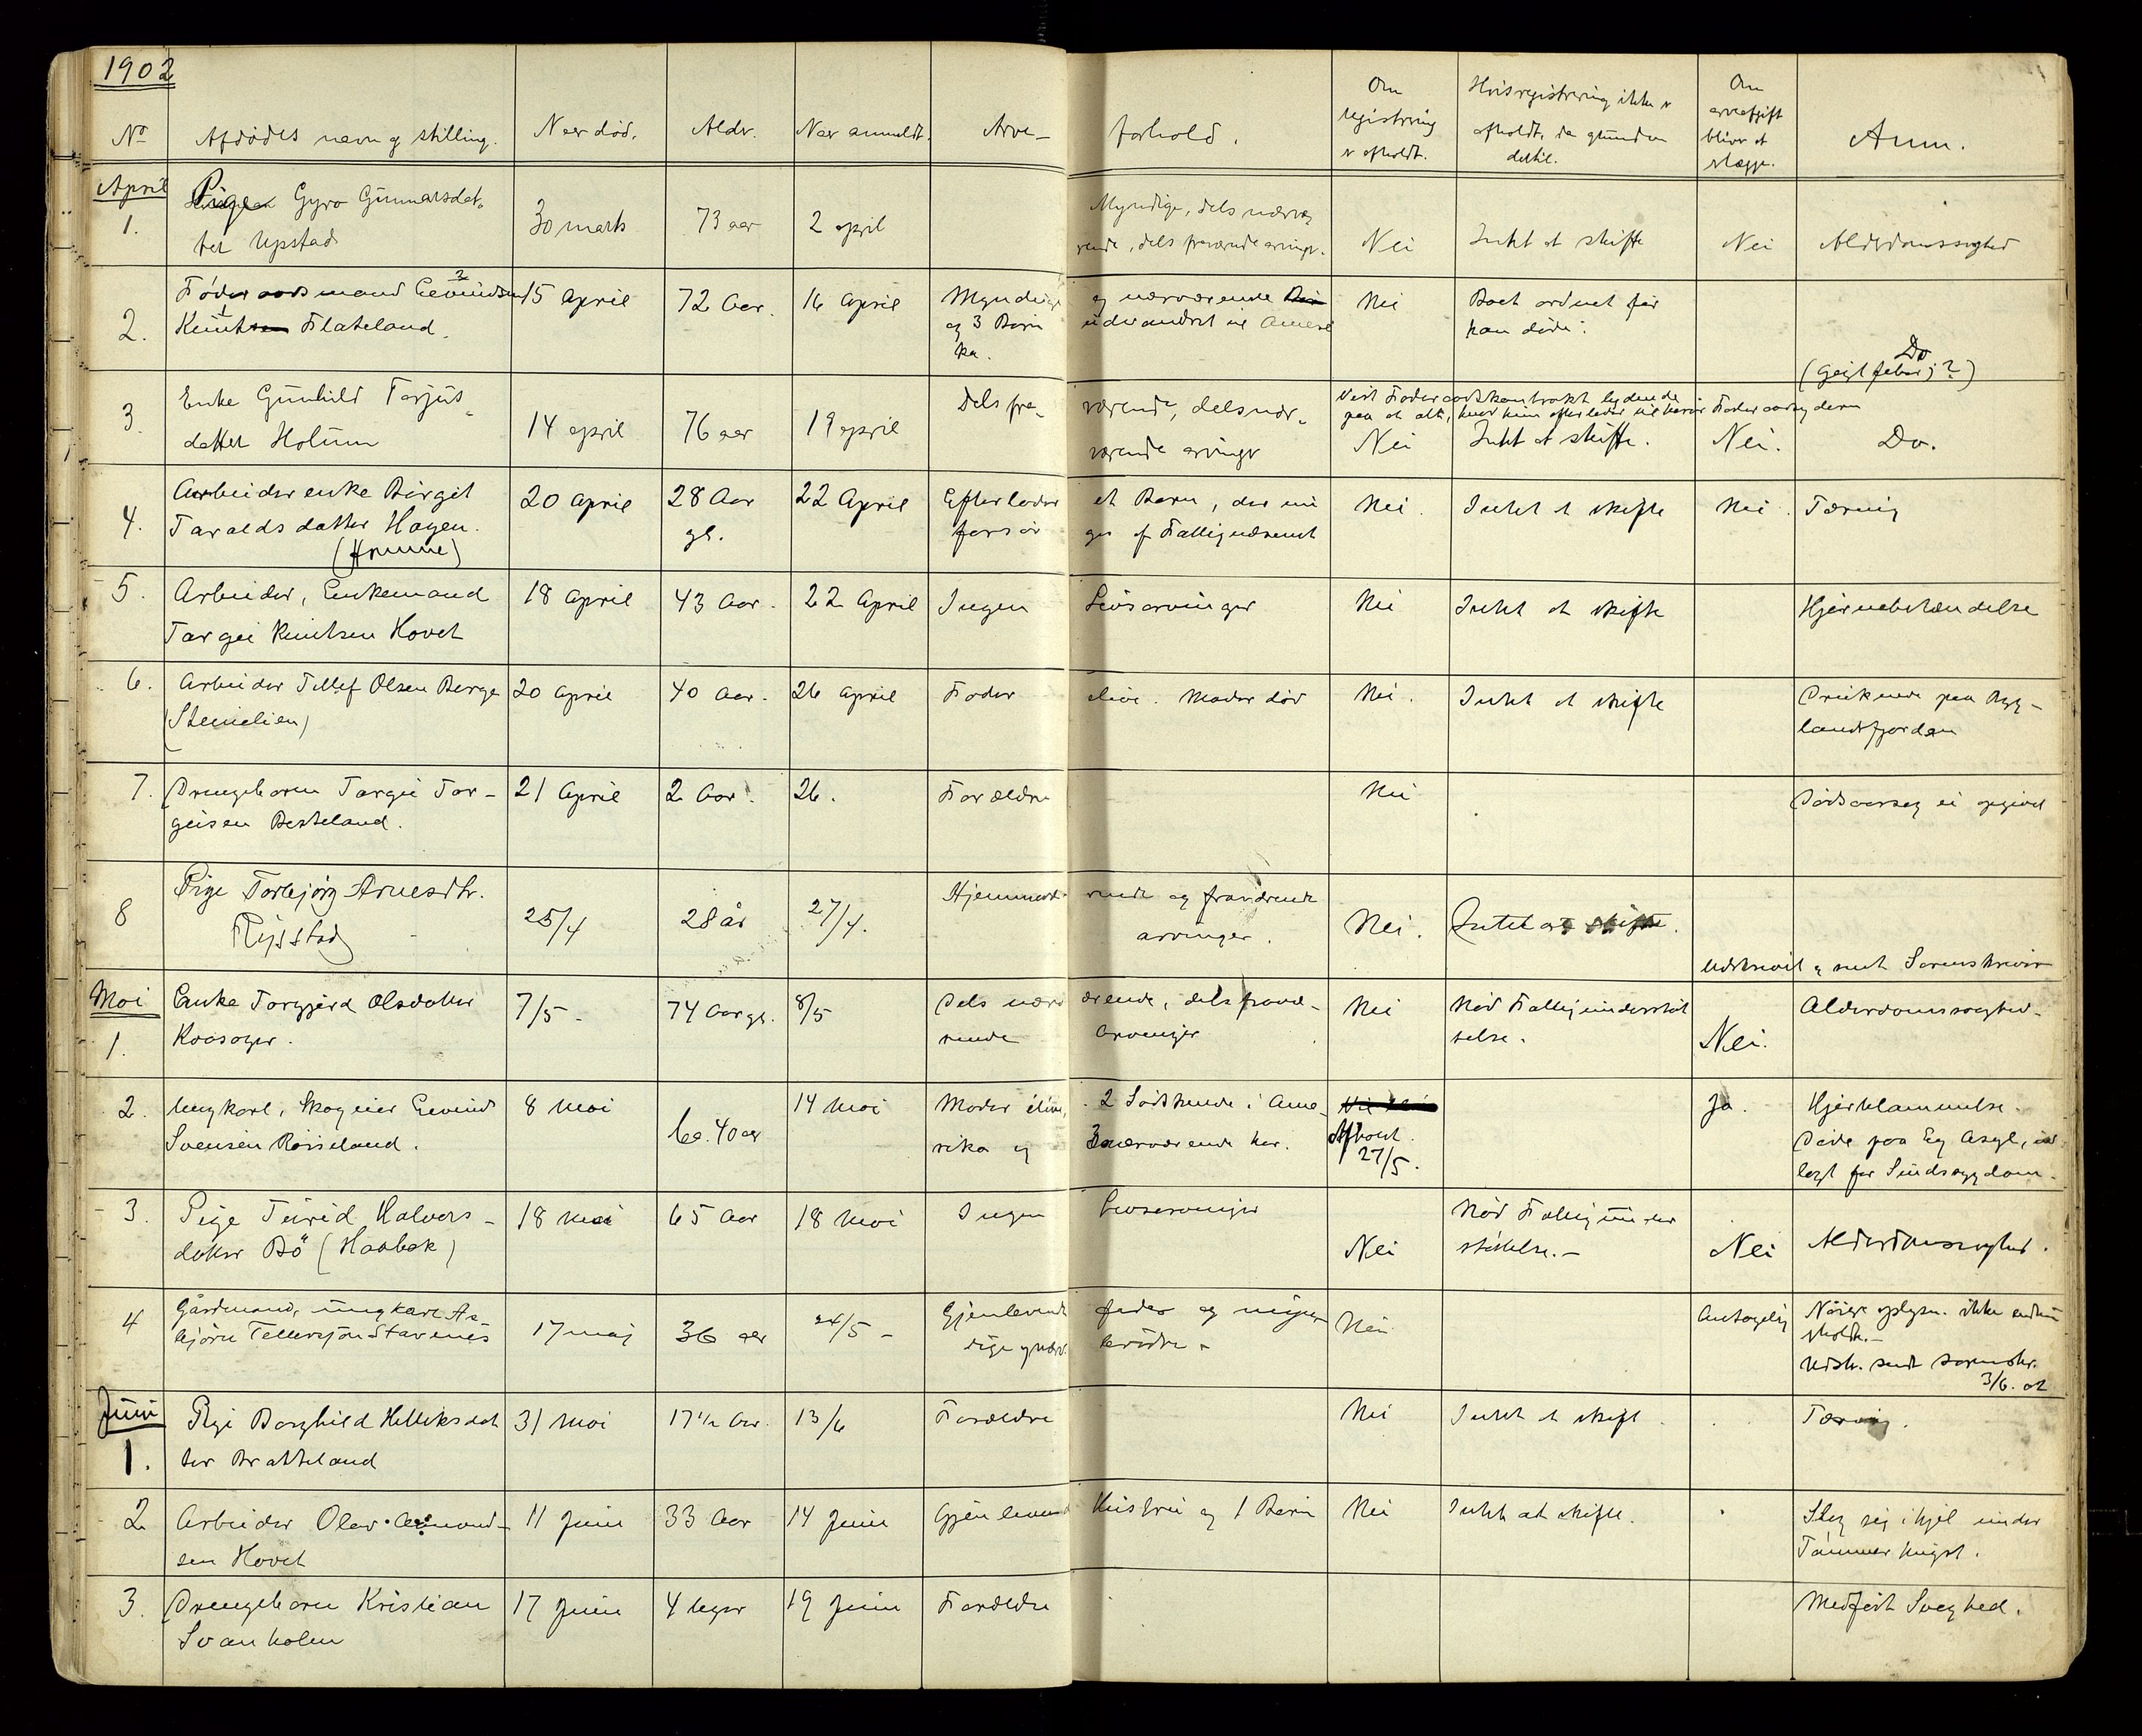 1902
No Afdødes navn og stilling. Naar død. Alder. Naar anmeldt. Arve- forhold. Om registrering er afholdt. Hvis registrering ikke er afholdt, da grunden dertil. Om arveafgift bliver at erlægge. Anm.
April
1. Pige Gyro Gunnarsdat- 30 marts 73 aar 2 april Myndige, dels nærvæ
ter Upstad rende, dels fraværende arvinger. Nei Intet at skifte Nei Alderdomssvaghed
2. Føderaadsmand Eevindsen 15 April 72 Aar. 16 April Myndige og nærværende Nei Boet ordnet før
Knut Flateland. og 3 Børn udvandret til Ameri han døde.
ka.
Do
(Gigtfeber ?)
3. Enke Gunhild Torjus- Dels fra- værende, dels nær- Vist Føderaadskontrakt lydende
paa at alt, hvad hun efterlader tilhører Føderaadsyderen
datter Holum 14 april 76 aar 19 april værende arvinger Nei Intet at skifte. Nei. Do.
4. Arbeider enke Birgit 20 April 28 Aar 22 April Efterlader et Barn, der Nei. Intet at skifte Nei. Tæring
Taraldsdatter Hagen. gl. forsør ges af Fattigvæsenet
5. Arbeider, Enkemand 18 April 43 Aar. 22 April Ingen Livsarvinger Nei Intet at skifte Hjernebetændelse
Targei Knutsen Hovet
6. Arbeider Tellef Olsen Berge 20 April 40 Aar. 26 April Fader ilive. Moder død Nei. Intet at skifte Druknede paa Byg-
(Steinlien) landsfjorden
7. Drengebarn Targei Tar- 21 April 2 Aar. 26. Forældre Nei Dødsaarsag ei opgivet
geisen Besteland.
8 Pige Torbjørg Arnesdtr. 25/4 28 år 27/4. Hjemmeværende og fraværende
Rysstad arvinger. Nei. Intet at skifte.
Udskrevet og sendt Sorenskriver
Mai
1. Enke Torgjerd Olsdatter 7/5 - 74 Aar gl. 8/5 Dels nærværende, dels fravæ- Nei Nød Fattigunderstøt Alderdomssvaghed.
rende Arvinger telse. Nei.
2. Ungkarl, Skogeier Eevind 8 Mai ca. 40 aar 14 Mai Moder ilive, 2 Sødskende i Ame- Ja. Hjertelammelse.
Svensen Røiseland. rika og 3 nærværende her. Afholdt Døde paa Eg Asyl, ind
27/5. lagt for Sindssygdom.
3. Pige Turid Halvors- 18 Mai 65 Aar 18 Mai Ingen Livsarvinger Nød Fattigunder
datter Bö (Haabæk) Nei støttelse.- Nei Alderdomssvaghed.
4 Gårdmand, ungkarl As- 17 maj 36 aar 24/5 - Gjenlevende fader og Nei Antagelig Nøiere oplysn. ikke endnu
bjørn Tellefsøn Stavenes brødre - 
Udsk. sendt sorenskr.
3/6. 02
Juni
1. Pige Borghild Helleksdat 31 Mai 17 1/2 Aar. 13/6 Forældre Nei Intet at skifte. Tæring.
ter Bratteland
2 Arbeider Olav Aasmund- 11 Juni 33 Aar 14 Juni Gjenlevende Hustru og 1 Barn Nei Intet at skifte. Slog sig ihjel under
sen Hovet Tømmerhugst.
3. Drengebarn Kristian 17 Juni 4 Uger 19 Juni Forældre Medfødt Svaghed.
Svanholm